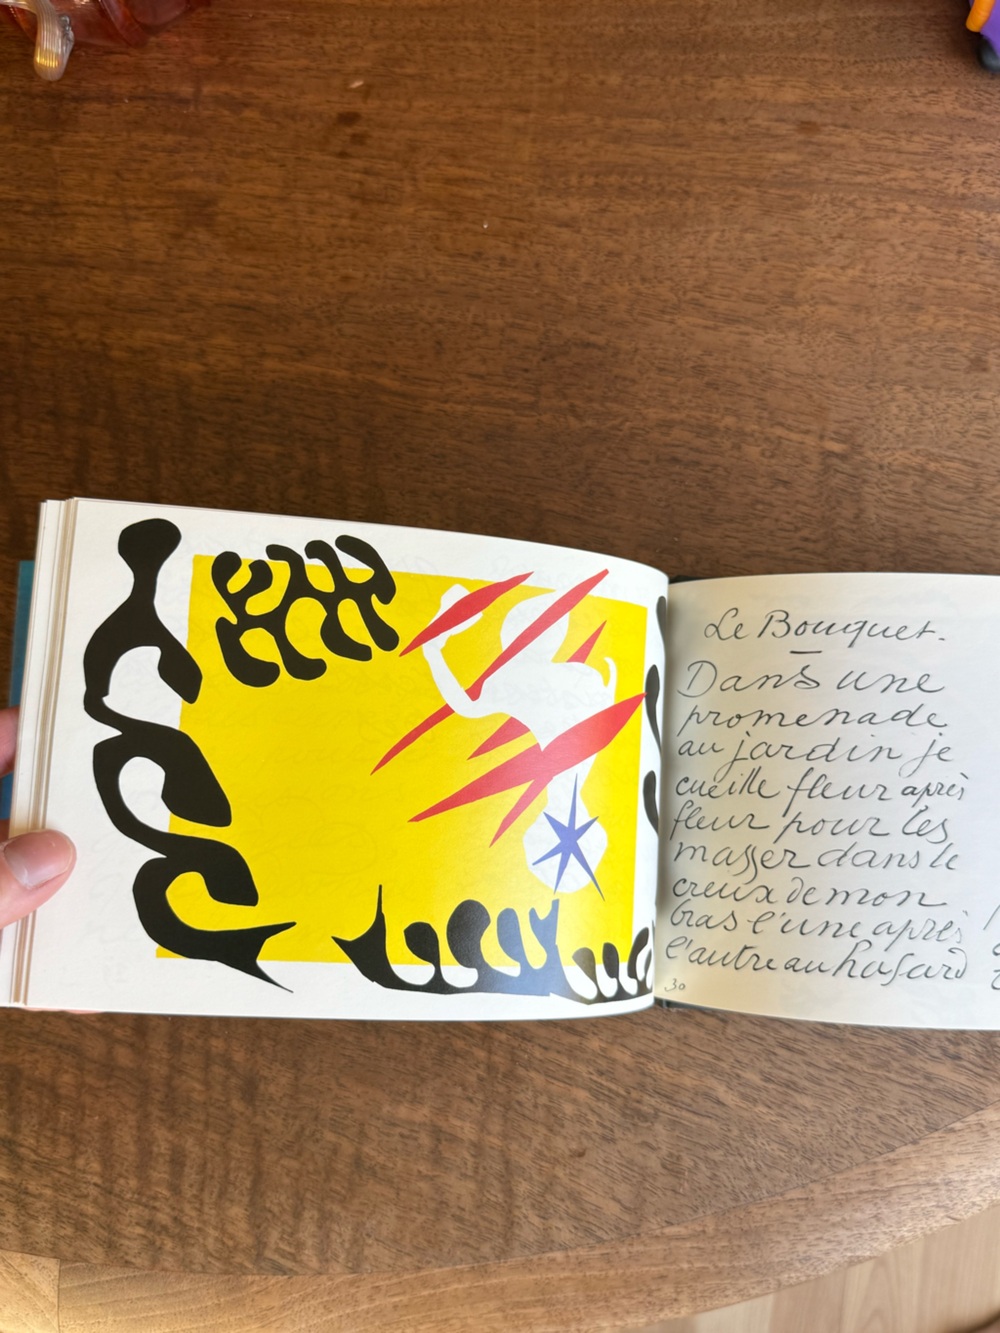 Le Bouquet.
Dans une
promenade
au jardin je
cueille fleur après
fleur pour les
masser dans le
creux de mon
bras l'une après
l'autre au hasard
30